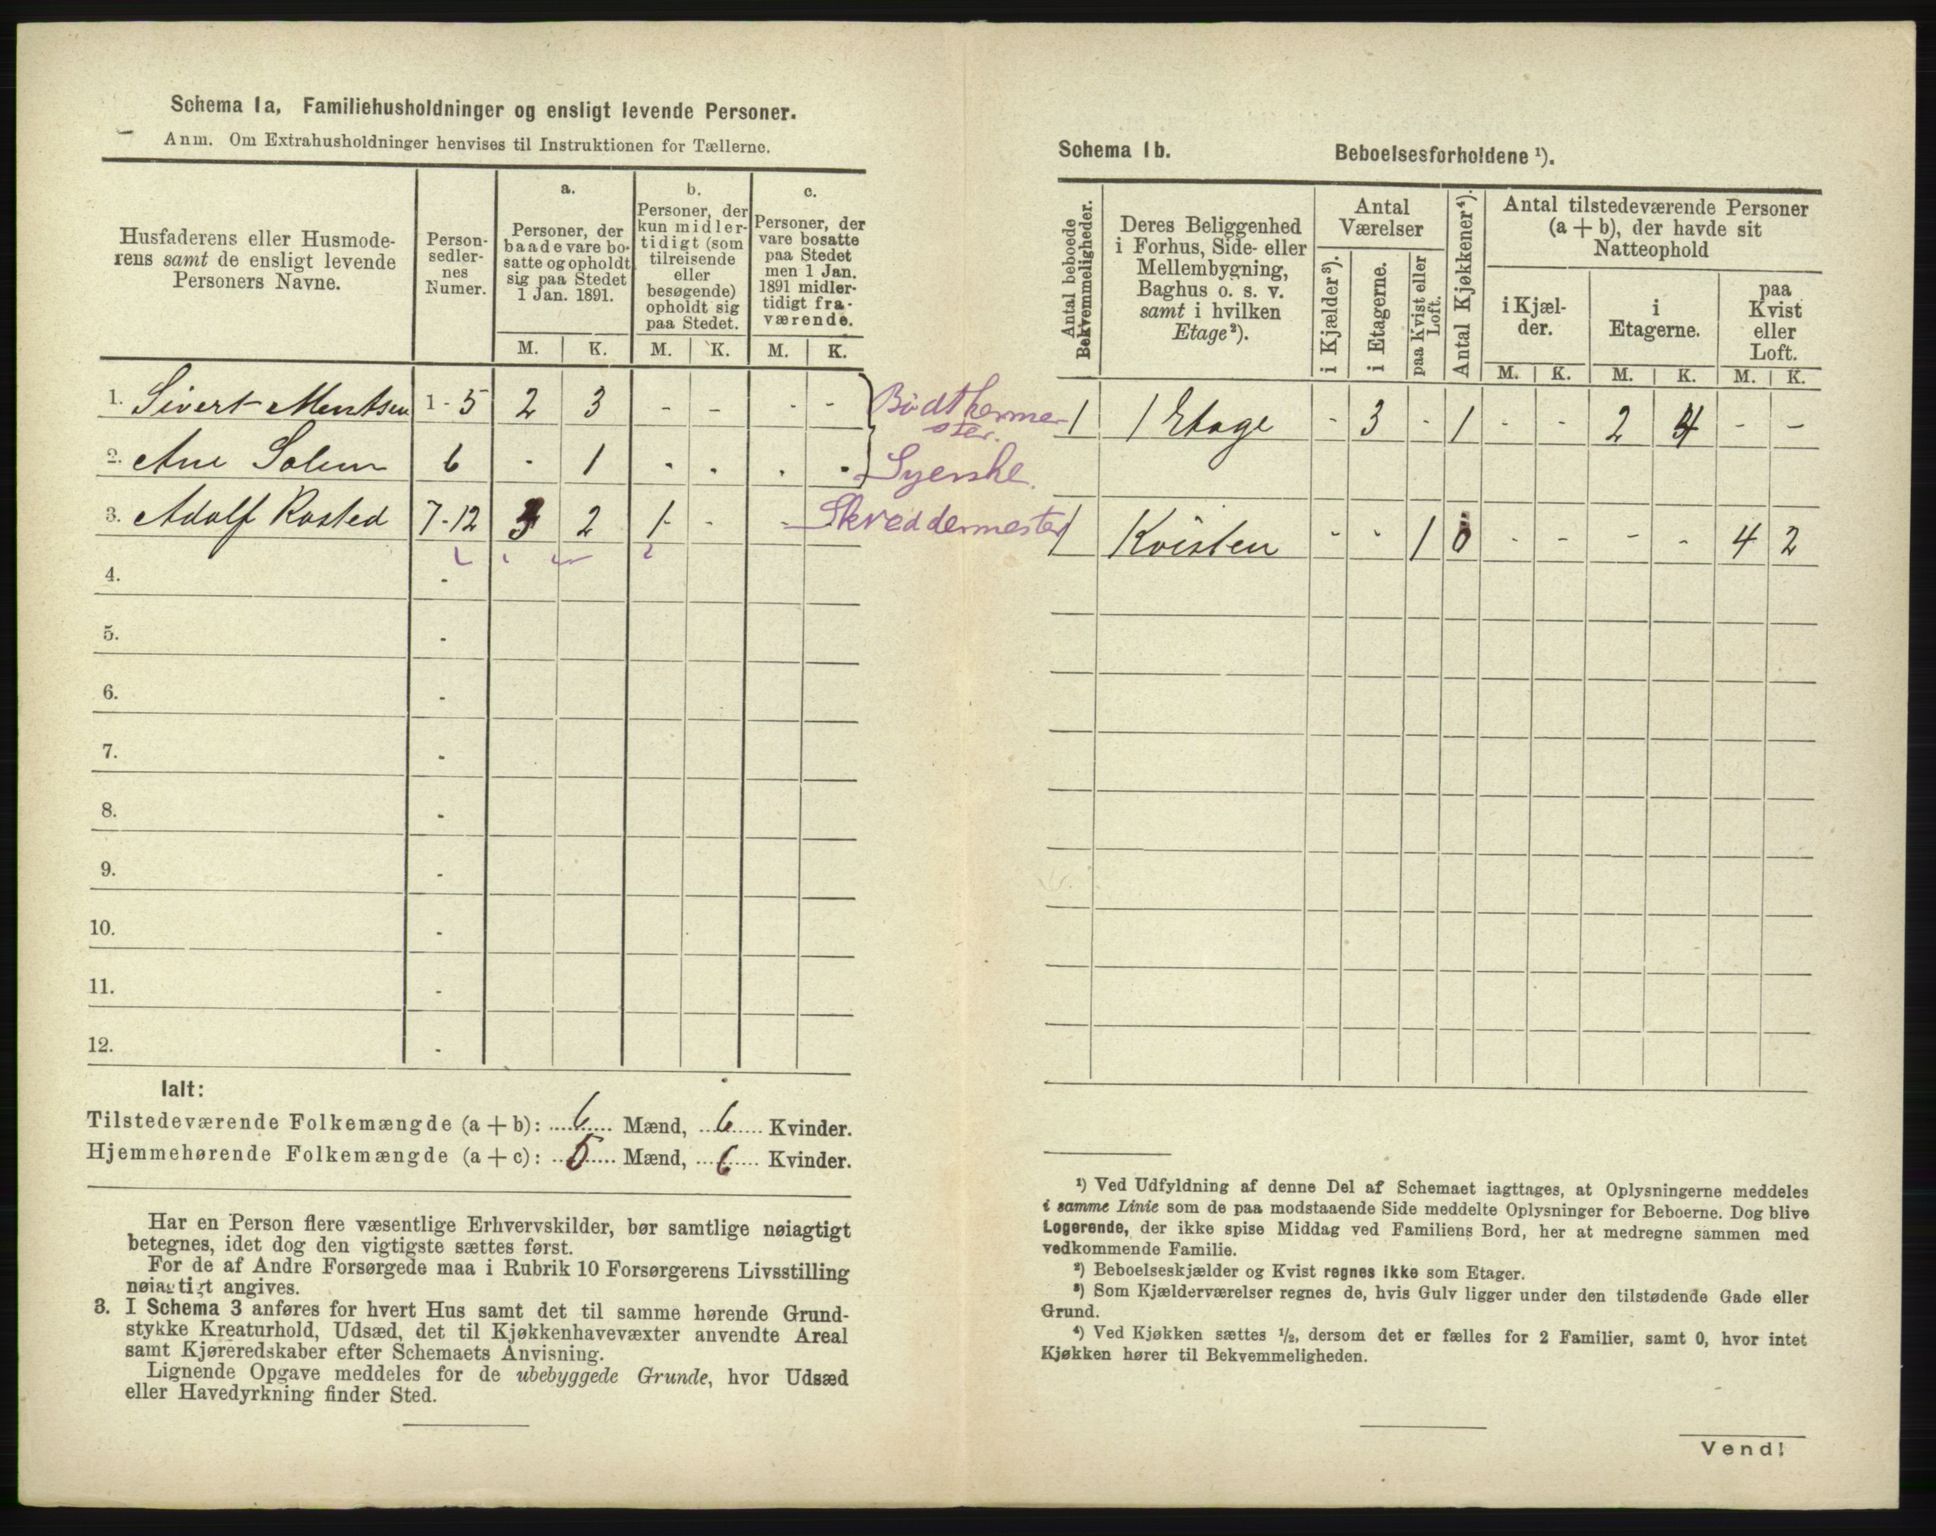 Schema 1a. Familiehusholdninger og ensligt levende Personer.
Anm. Om Extrahusholdninger henvises til Instruktionen for Tællerne.
Husfaderens eller Husmode-
rens samt de ensligt levende
Personers Navne.
Person-
sedler-
nes
Numer.
a.
Personer, der
baade vare bo-
satte og opholdt
sig paa Stedet
1 Jan. 1891.
b.
Personer, der
kun midler-
tidigt (som
tilreisende
eller
besøgende)
opholdt sig
paa Stedet.
c.
Personer, der
vare bosatte
paa Stedet
men 1 Jan.
1891 midler-
tidigt fra-
værende.
M. K. M. K. M. K.
1. Sivert Mentsen 1-5 2 3 - - - - Bødtkerme-
ster.
2. Ane Solem 6 - 1 . . . . Syerske.
3. Adolf Rosted 7-12 3 2 1 - - Skreddermester
4. -
5. -
6. -
7. -
8. -
9. -
10. -
11. -
12. -
Ialt:
Tilstedeværende Folkemængde (a + b): 6 Mænd, 6 Kvinder.
Hjemmehørende Folkemængde (a + c): 5 Mænd, 6 Kvinder.
Har en Person flere væsentlige Erhvervskilder, bør samtlige nøiagtigt
betegnes, idet dog den vigtigste sættes først.
For de af Andre Forsørgede maa i Rubrik 10 Forsørgerens Livsstilling
nøiagtigt angives.
3. I Schema 3 anføres for hvert Hus samt det til samme hørende Grund-
stykke Kreaturhold, Udsæd, det til Kjøkkenhavevæxter anvendte Areal
samt Kjøreredskaber efter Schemaets Anvisning.
Lignende Opgave meddeles for de ubebyggede Grunde, hvor Udsæd
eller Havedyrkning finder Sted.
Schema 1b. Beboelsesforholdene ¹).
Antal beboede
Bekvemmeligheder.
Deres Beliggenhed
i Forhus, Side- eller
Mellembygning,
Baghus o. s. v.
samt i hvilken
Etage²).
Antal
Værelser
i Kjælder³).
i Etagerne.
paa Kvist eller
Loft.
Antal Kjøkkener⁴).
Antal tilstedeværende Personer
(a + b), der havde sit
Natteophold
i Kjæl-
der.
i
Etagerne.
paa
Kvist
eller
Loft.
M. K. M. K. M. K.
1 1 Etage - 3 1 - - 2 4 - -
1 Kvisten - - 1 0 - - - - 4 2
¹) Ved Udfyldning af denne Del af Schemaet iagttages, at Oplysningerne meddeles
i samme Linie som de paa modstaaende Side meddelte Oplysninger for Beboerne. Dog blive
Logerende, der ikke spise Middag ved Familiens Bord, her at medregne sammen med
vedkommende Familie.
²) Beboelseskjælder og Kvist regnes ikke som Etager.
³) Som Kjælderværelser regnes de, hvis Gulv ligger under den tilstødende Gade eller
Grund.
⁴) Ved Kjøkken sættes ½, dersom det er fælles for 2 Familier, samt 0, hvor intet
Kjøkken hører til Bekvemmeligheden.
Vend!